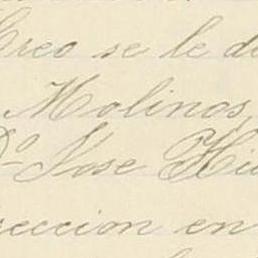 Creo se le d
Molinos,
Dº Jose Hi
reccion en